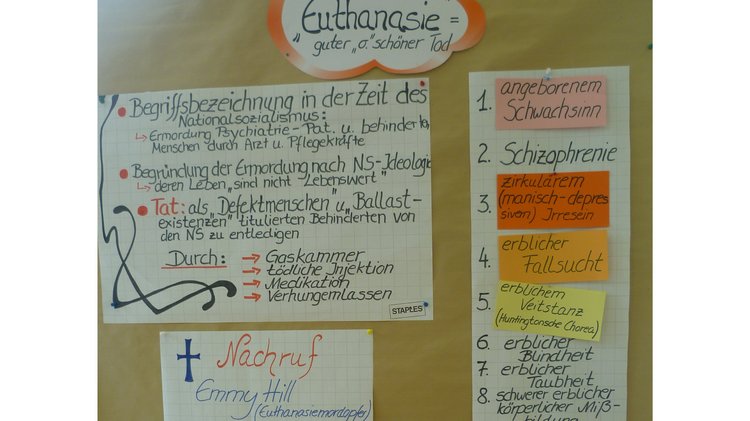 "Euthanasie" =
"guter "o." schöner Tod
Begriffsbezeichnung in der Zeit des
Nationalsozialismus:
↳ Ermordung Psychiatrie-Pat. u. behinderter
Menschen durch Arzt u. Pflegekräfte
Begründung der Ermordung nach NS-Ideologie
↳ deren Leben "sind nicht Lebenswert"
Tat: als "Defektmenschen" u. "Ballast-
existenzen" titulierten Behinderten von
den NS zu entledigen
Durch: → Gaskammer
→ tödliche Injektion
→ Medikation
→ Verhungernlassen
STAPLES
Nachruf
Emmy Hill
(Euthanasiemordopfer)
1. angeborenem
Schwachsinn
2. Schizophrenie
3. zirkulärem
(manisch-depres
siven) Irresein
4. erblicher
Fallsucht
5. erblichem
Veitstanz
(Huntingtonsche Chorea)
6. erblicher
Blindheit
7. erblicher
Taubheit
8. schwerer erblicher
körperlicher Miß-
bildung